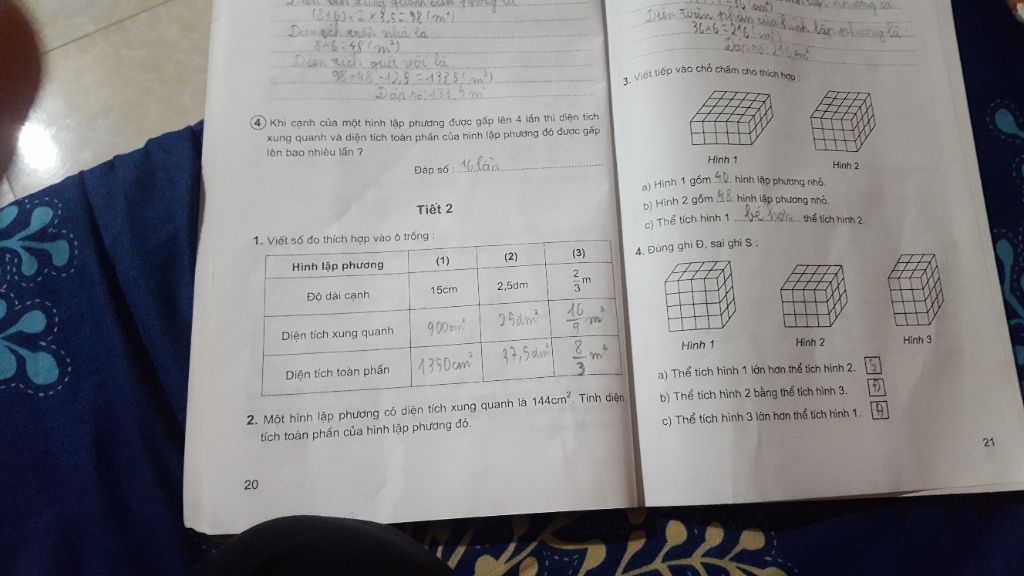 (8+6) × 2 × 3,5 = 98 (m²)
8×6 = 48 (m²)
98+48-12,5 = 133,5 (m²)
Đáp số: 133,5 m
4 Khi cạnh của một hình lập phương được gấp lên 4 lần thì diện tích
xung quanh và diện tích toàn phần của hình lập phương đó được gấp
lên bao nhiêu lần ?
Đáp số : 16 lần
Tiết 2
1. Viết số đo thích hợp vào ô trống :
Hình lập phương (1) (2) (3)
Độ dài cạnh 15cm 2,5dm 2/3 m
Diện tích xung quanh 900cm² 25dm² 16/9 m²
Diện tích toàn phần 1350cm² 37,5dm² 8/3 m²
2. Một hình lập phương có diện tích xung quanh là 144cm². Tính diện
tích toàn phần của hình lập phương đó.
20
Diện tích toàn phần của hình lập phương là:
36×6 = 216 (m²)
Đáp số: 216 m²
3. Viết tiếp vào chỗ chấm cho thích hợp :
Hình 1 Hình 2
a) Hình 1 gồm 40 hình lập phương nhỏ.
b) Hình 2 gồm 48 hình lập phương nhỏ.
c) Thể tích hình 1 bé hơn thể tích hình 2.
4. Đúng ghi Đ, sai ghi S :
Hình 1 Hình 2 Hình 3
a) Thể tích hình 1 lớn hơn thể tích hình 2. S
b) Thể tích hình 2 bằng thể tích hình 3. Đ
c) Thể tích hình 3 lớn hơn thể tích hình 1.
21